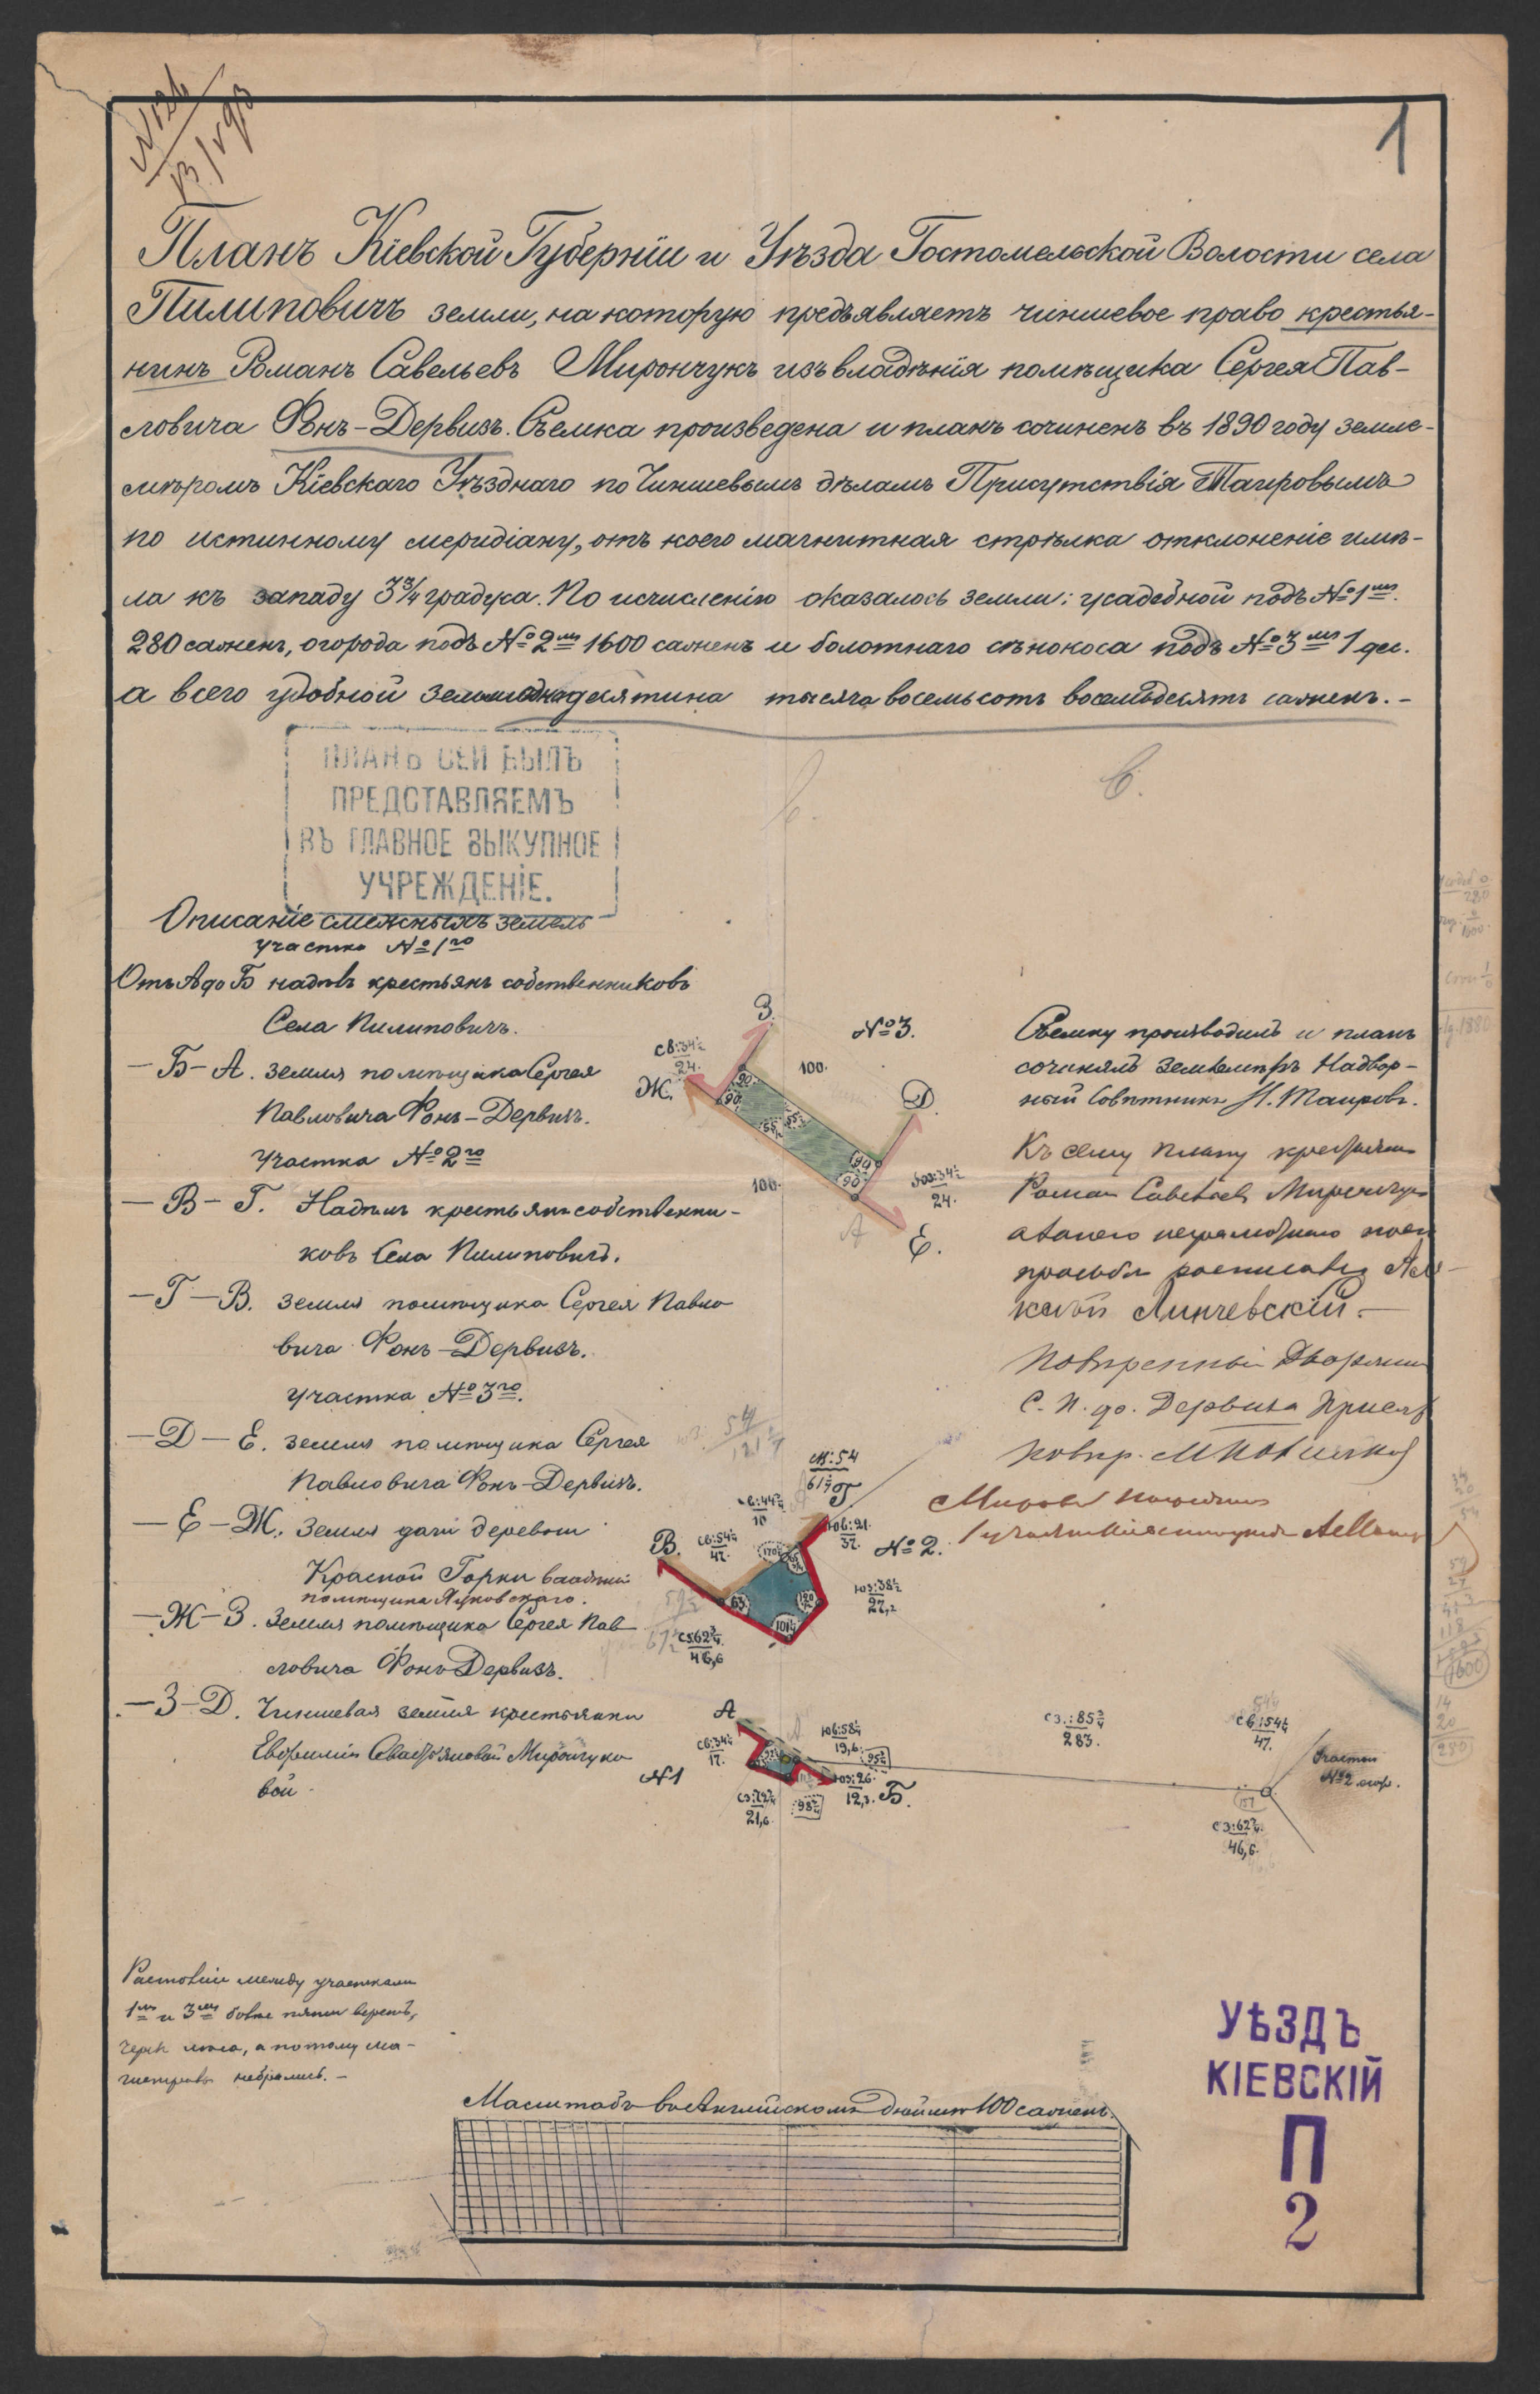 № 126
1
Планъ Кіевской Губерніи и Уѣзда Гостомельской Волости села
Пилиповичъ земли, на которую предъявляетъ чиншевое право крестья-
нинъ Романъ Савельевъ Мирончукъ изъ владѣнія помѣщика Сергея Пав-
ловича Фонъ-Дервизъ. Съемка произведена и планъ сочиненъ въ 1890 году земле-
мѣромъ Кіевскаго Уѣзднаго по Чиншевымъ дѣламъ Присутствія Таировымъ
по истинному меридіану, отъ коего магнитная стрѣлка отклоненіе имѣ-
ла къ западу 3¾ градуса. По исчисленію оказалось земли: усадебной подъ №1мъ
280 саженъ, огорода подъ №2мъ 1600 саженъ и болотнаго сѣнокоса подъ №3мъ 1 дес.
а всего удобной земли одна десятина тысяча восемьсотъ восемьдесятъ саженъ.-
ПЛАНЪ СЕЙ БЫЛЪ
ПРЕДСТАВЛЯЕМЪ
ВЪ ГЛАВНОЕ ВЫКУПНОЕ
УЧРЕЖДЕНІЕ.
Описаніе смежныхъ земель
участка №1го
Отъ А до Б надѣлъ крестьянъ собственниковъ
Села Пилиповичъ.
— Б — А. земля помѣщика Сергея
Павловича Фонъ-Дервизъ.
Участка №2го
— В — Г. Надѣлъ крестьянъ собственни-
ковъ Села Пилиповичъ.
— Г — В. земля помѣщика Сергея Павло
вича Фонъ-Дервизъ.
Участка №3го.
— Д — Е. земля помѣщика Сергея
Павловича Фонъ-Дервизъ.
— Е — Ж. Земля дачи деревни
Красной Горки владѣнія
помѣщика
— Ж — З. Земля помѣщика Сергея Пав
ловича Фонъ Дервизъ.
— З — Д. Чиншевая земля крестьянки
Евфиміи Мирончуко
вой.
З.
№3.
СВ:34½
24.
Ж.
100.
90
90
Д.
90
90
100.
ЮЗ:34½
24.
А
Е.
Съемку производилъ и планъ
сочинялъ Землемѣръ Надвор-
ный Совѣтникъ Н. Таировъ.
Къ сему плану крестьянинъ
Романъ Савельевъ Мирончукъ
а за него неграмотнаго по его
просьбѣ росписался
Линчевскій.-
Повѣренный Дворянина
С. П. фо. Дервиза
повѣр.
54
М:54
61½
Г
10
СВ:54½
47.
В.
ЮВ:21.
32.
№2.
ЮЗ:38½
27,2
63
101¼
СЗ:62¾
46,6
А
СВ:34½
17.
ЮВ:58½
19,6.
95½
№1
ЮЗ:26.
12,3.
Б.
21,6.
98½
СЗ:85¾
283.
СВ:54½
47.
Участокъ
№2 огор.
157
СЗ:62¾
46,6.
Растояніе между участками
1мъ и 3мъ болѣе пяти верстъ,
черезъ лѣса, а потому ма-
гистрали небрались.-
Масштабъ въ Англійскомъ дюймѣ 100 саженъ.
УѢЗДЪ
КІЕВСКІЙ
П
2